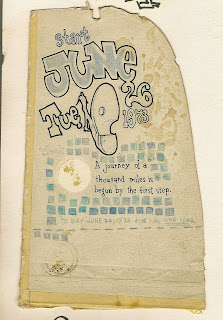 start
JUNE
Tue 26
1973
A journey of a
thousand miles is
begun by the first step.